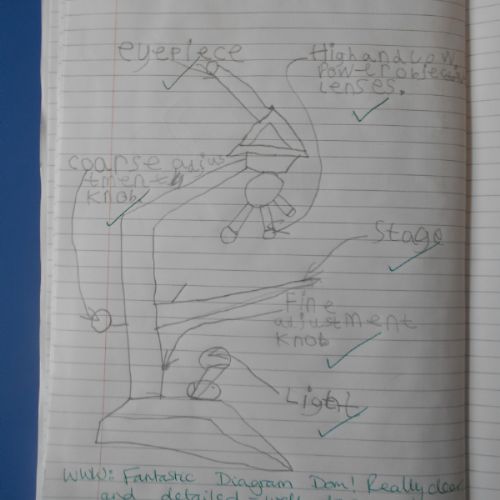 eyepiece
High and low
power objective
lenses.
coarse adjus
tment
knob
Stage
Fine
adjustment
knob
Light
WWW: Fantastic Diagram Dom! Really clear
and detailed - well